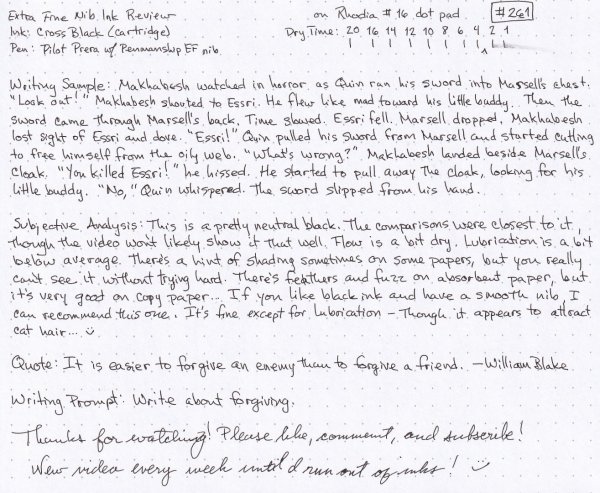 Extra Fine Nib Ink Review on Rhodia #16 dot pad #261
Ink: Cross Black (Cartridge) Dry Time: 20 16 14 12 10 8 6 4 2 1
Pen: Pilot Prera w/ Penmanship EF nib
Writing Sample: Makhabesh watched in horror as Quin ran his sword into Marsell's chest.
"Look out!" Makhabesh shouted to Essri. He flew like mad toward his little buddy. Then the
sword came through Marsell's back. Time slowed. Essri fell. Marsell dropped. Makhabesh
lost sight of Essri and dove. "Essri!" Quin pulled his sword from Marsell and started cutting
to free himself from the oily web. "What's wrong?" Makhabesh landed beside Marsell's
cloak. "You killed Essri!" he hissed. He started to pull away the cloak, looking for his
little buddy. "No," Quin whispered. The sword slipped from his hand.
Subjective Analysis: This is a pretty neutral black. The comparisons were closest to it,
though the video won't likely show it that well. Flow is a bit dry. Lubrication is a bit
below average. There's a hint of shading sometimes on some papers, but you really
can't see it without trying hard. There's feathers and fuzz on absorbent paper, but
it's very good on copy paper... If you like black ink and have a smooth nib, I
can recommend this one. It's fine except for lubrication - Though it appears to attract
cat hair... ü
Quote: It is easier to forgive an enemy than to forgive a friend. -William Blake
Writing Prompt: Write about forgiving.
Thanks for watching! Please like, comment, and subscribe!
New video every week until I run out of inks! ü